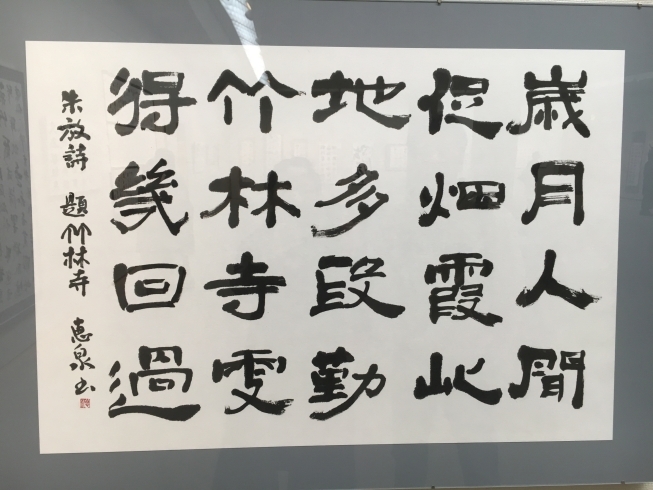 歳月人間
促烟霞此
地多殷勤
竹林寺更
得幾回過
朱放詩 題竹林寺 恵泉书